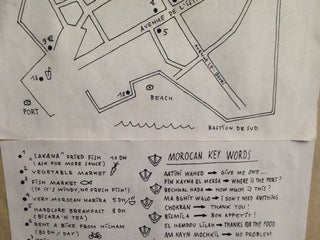 AVENUE DE L'IST
9€
4
5
13
10
PORT
BEACH
BASTION DE SUD
1 "SAKANA" DRIED FISH 10 DH
(ASK FOR MORE SAUCE)
2 VEGETABLE MARKET
3 FISH MARKET
(IF IT'S WINDY, NO FRESH FISH!)
4 VERY MOROCAN HARIRA 5 DH
5 HARDCORE BREAKFAST 8 DH
(BISARA 'N TEA)
6 RENT A BIKE FROM HILHAM
(80 DH / DAY)
MOROCAN KEY WORDS
AATINI WAHED → GIVE ME ONE...
FIN KAYN EL MERSA → WHERE IS THE PORT?
BECHHAL HADA → HOW MUCH IS THIS?
MA BGHIT WALO → I DON'T NEED ANYTHING
CHOKRAN → THANK YOU
BISMILA → BON APPETIT!
EL HAMDOU LILAH → THANKS FOR THE FOOD
MA KAYN MOCHKIL → NO PROBLEM